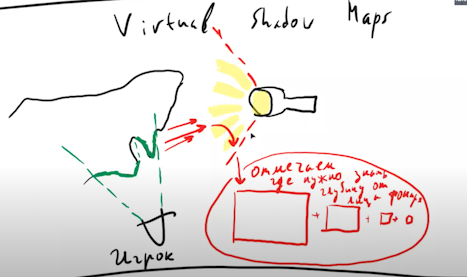 Virtual Shadow Maps
отмечаем
где нужно знать
глубину от
лица фонаря
Игрок